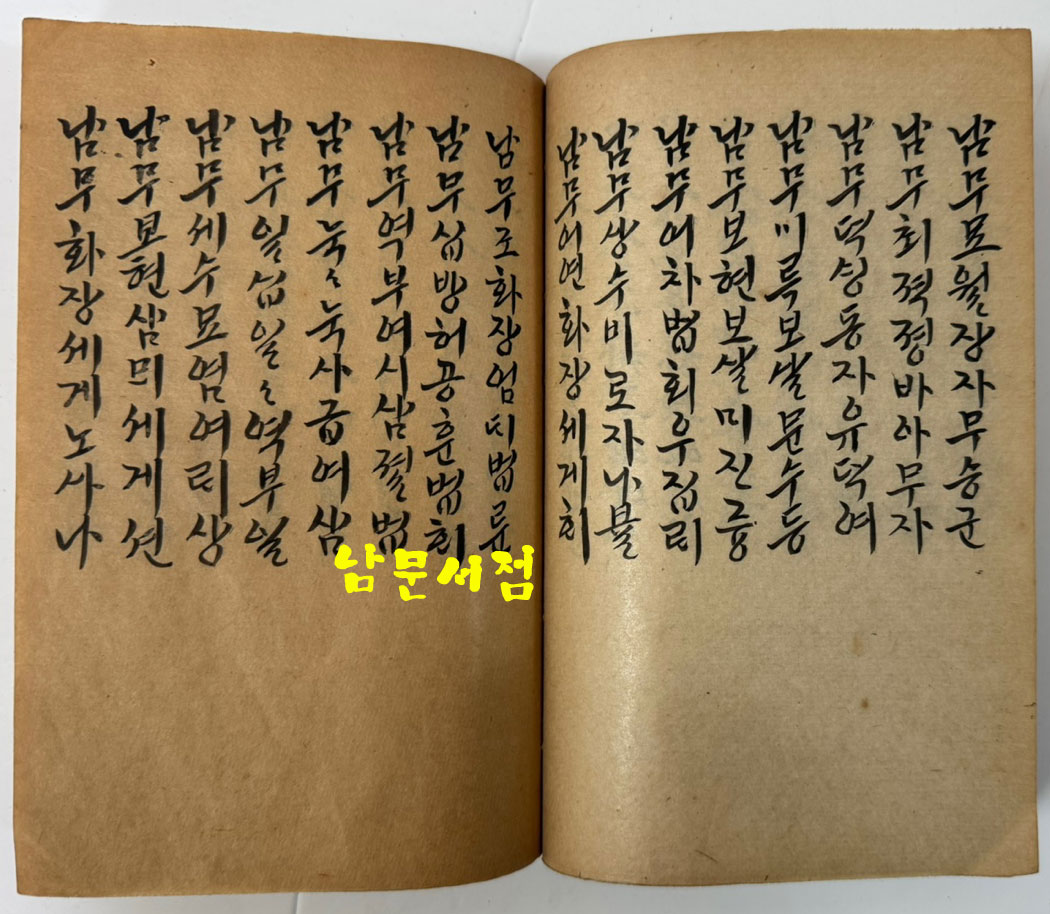 남무묘월장자무승군
남무최젹졍바아무자
남무덕싱동자유덕여
남무미륵보살문수등
남무보현보살미진즁
남무어차법회우집래
남무상수비로자나불
남무어연화장세게희
남무조화장엄대법륜
남무십방허공훈법회
남무역부여시삼졀법
남무눅〻눅사급여삼
남무일십일〻역부일
남무세수묘염여래상
남무보현삼매세게션
남무화장세게노사나
남문서점